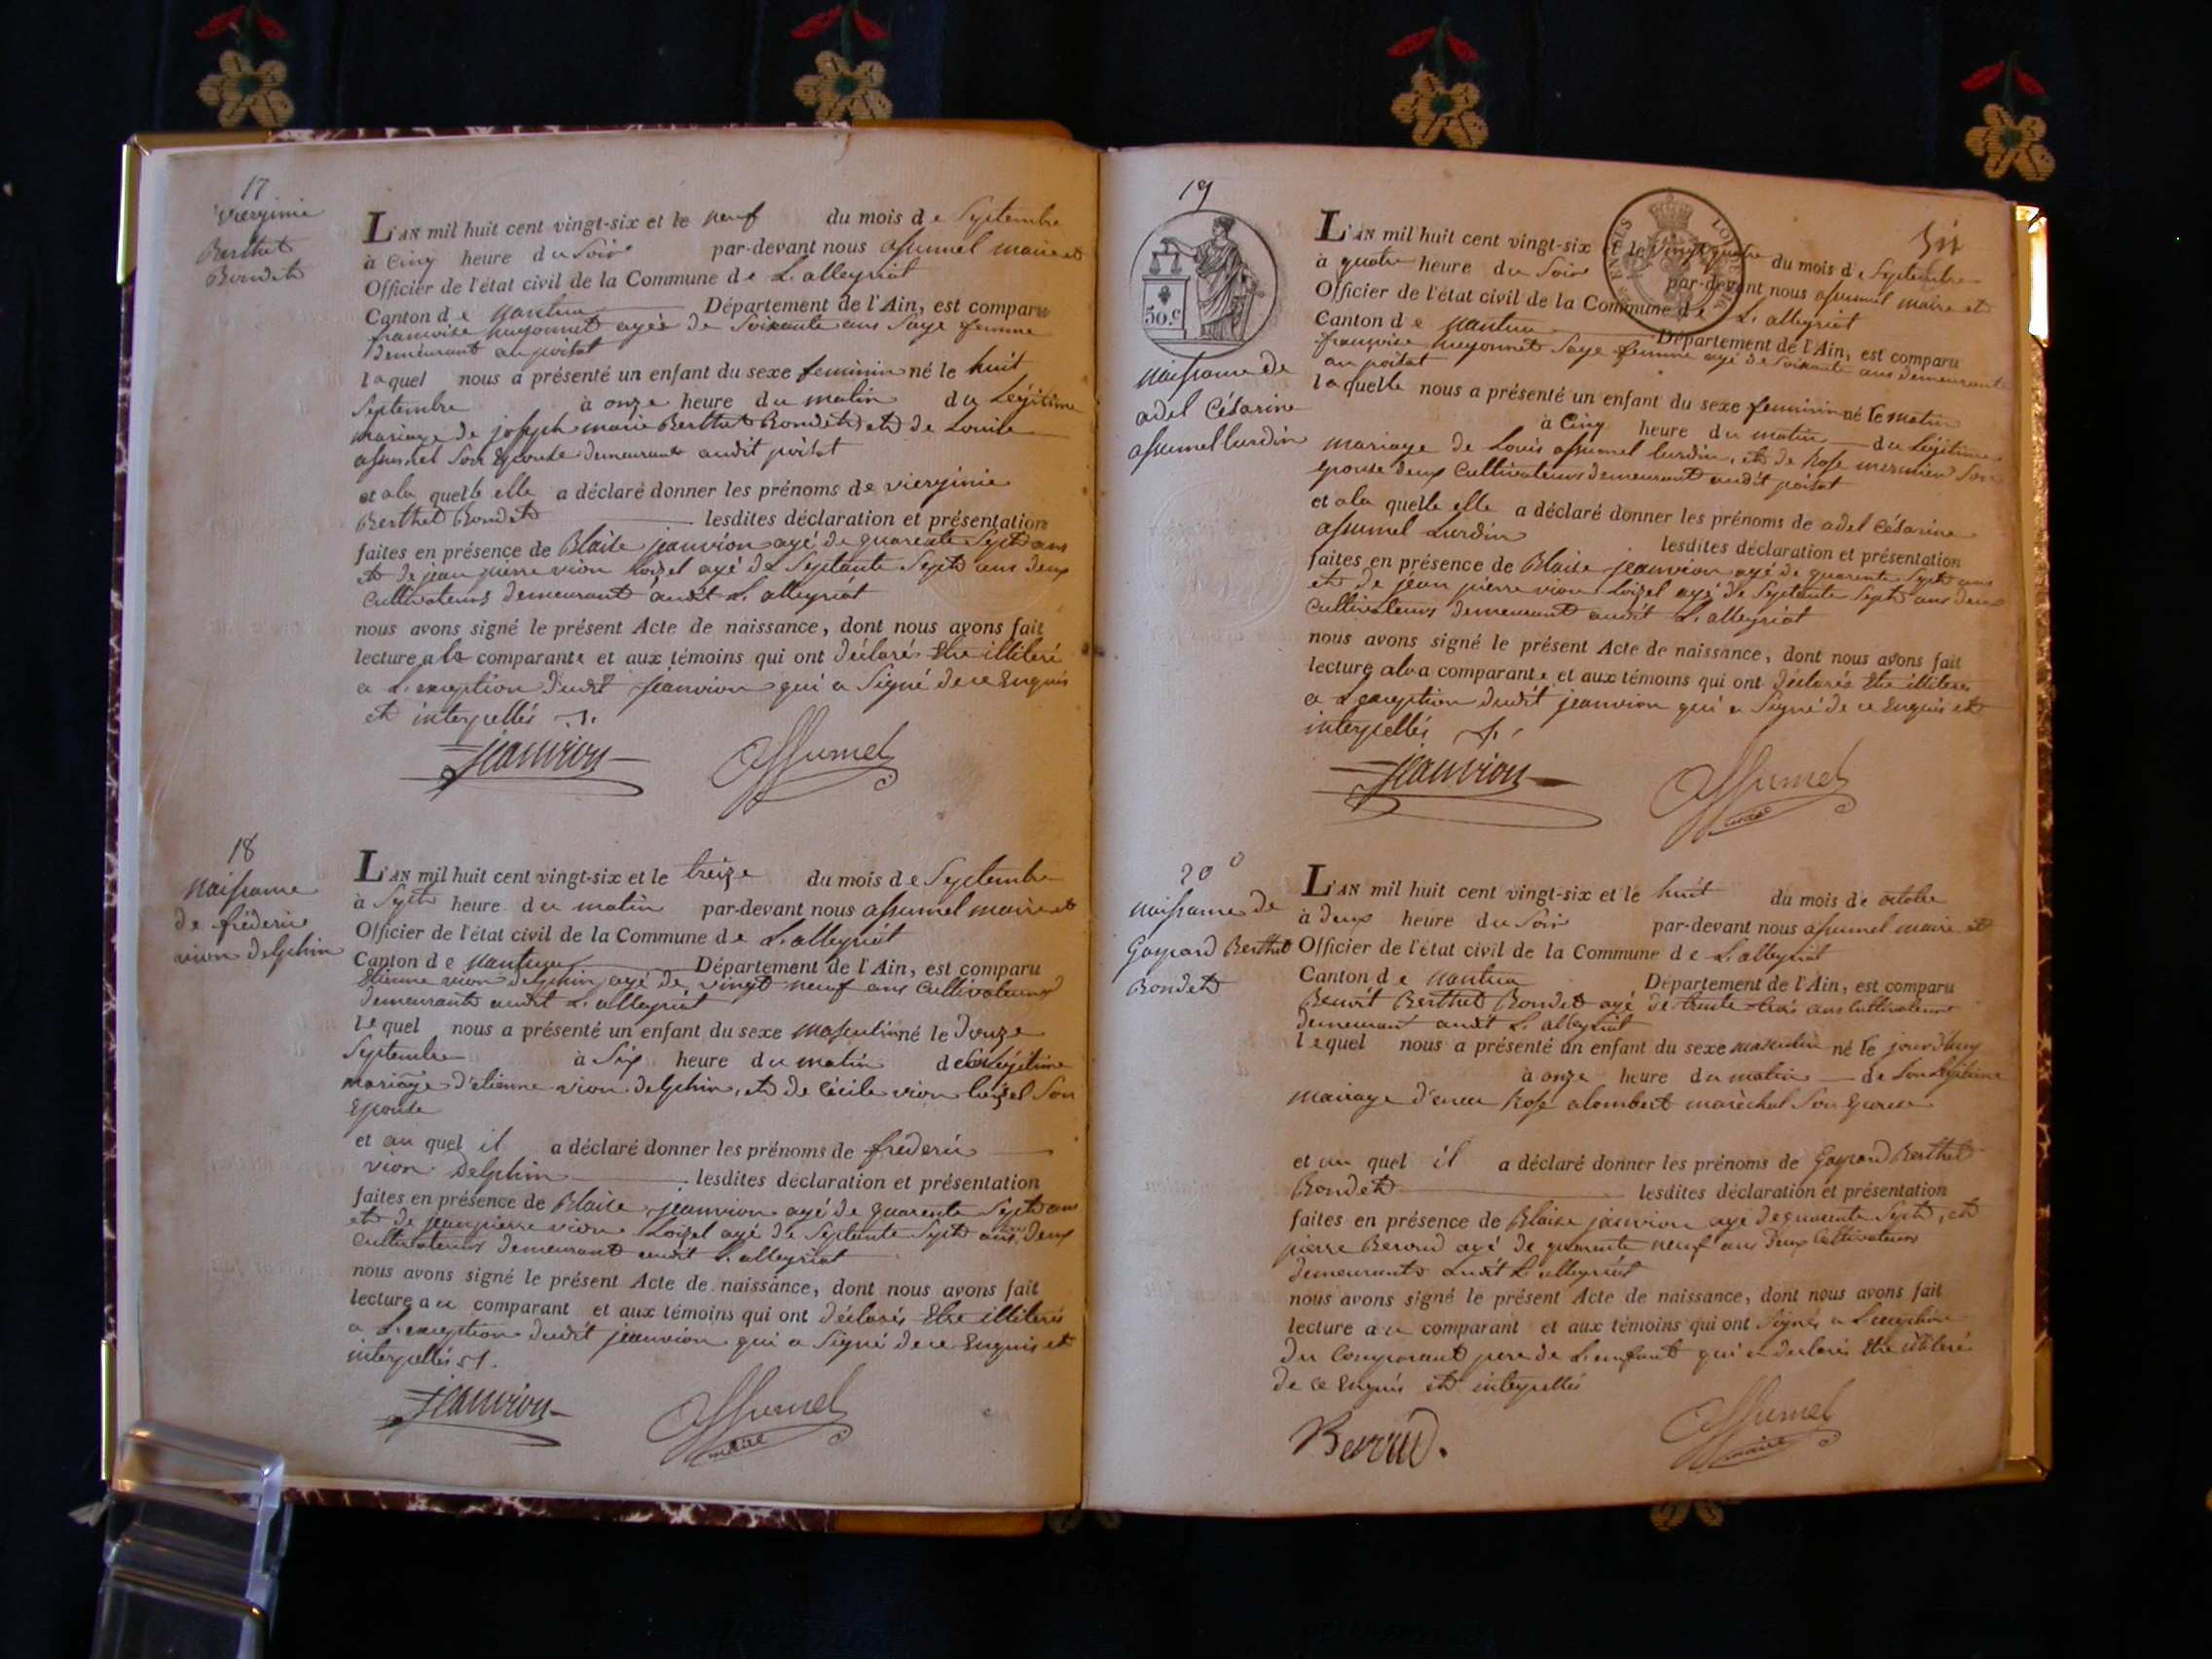 17
vierginie
Berthet
Bondet
L'AN mil huit cent vingt-six et le neuf du mois de Septembre
à Cinq heure du Soir par-devant nous assumel maire et
Officier de l'état civil de la Commune de L. alleyriat
Canton de nantua Département de l'Ain, est comparu
francoise meyonnet agée de Soixante ans Sage femme
demeurant au poitat
laquel nous a présenté un enfant du sexe feminin né le huit
Septembre à onze heure du matin du Légitime
mariage de joseph marie Berthet Bondet et de Louise
assumel Son Epouse demeurant audit poitat
et ala quelle elle a déclaré donner les prénoms de vierginie
Berthet Bondet lesdites déclaration et présentation
faites en présence de Blaise jeanvion agé de quarente Sept ans
et de jean pierre vion Loizel agé de Septante Sept ans deux
Cultivateurs demeurant audit L. alleyriat
nous avons signé le présent Acte de naissance, dont nous avons fait
lecture a la comparante et aux témoins qui ont déclarés Etre illiteré
a L. exception dudit jeanvion qui a Signé de ce Enquis
et interpellés
jeanvion Assumel
18
naissance
de fréderic
vion delphin
L'AN mil huit cent vingt-six et le treize du mois de Septembre
à Sept heure du matin par-devant nous assumel maire et
Officier de l'état civil de la Commune de L. alleyriat
Canton de nantua Département de l'Ain, est comparu
Etienne vion delphin agé de vingt neuf ans Cultivateur
demeurant audit L. alleyriat
lequel nous a présenté un enfant du sexe masculin né le douze
Septembre à Six heure du matin de Son Légitime
mariage d'etienne vion delphin, et de Cécile vion loizel Son
Epouse
et au quel il a déclaré donner les prénoms de fréderic
vion delphin lesdites déclaration et présentation
faites en présence de Blaise jeanvion agé de quarente Sept ans
et de jean pierre vion Loizel agé de Septante Sept ans deux
Cultivateurs demeurant audit L. alleyriat
nous avons signé le présent Acte de naissance, dont nous avons fait
lecture au comparant et aux témoins qui ont déclarés Etre illiterés
a L. exception dudit jeanvion qui a Signé de ce Enquis et
interpellés
jeanvion Assumel
maire
19
50.c
naissance de
adel Césarine
assumel lurdin
L'AN mil huit cent vingt-six et le vingt quatre du mois de Septembre
à quatre heure du Soir par-devant nous assumel maire et
Officier de l'état civil de la Commune de L. alleyriat
Canton de nantua Département de l'Ain, est comparu
francoise meyonnet Sage femme agé de Soixante ans demeurante
au poitat
laquelle nous a présenté un enfant du sexe feminin né le matin
à Cinq heure du matin du Légitime
mariage de Louis assumel lurdin, et de Rose mermier Son
epouse deux Cultivateurs demeurant audit poitat
et ala quelle elle a déclaré donner les prénoms de adel césarine
assumel Lurdin lesdites déclaration et présentation
faites en présence de Blaise jeanvion agé de quarente Sept ans
et de jean pierre vion Loizel agé de Septante Sept ans deux
Cultivateurs demeurant audit L. alleyriat
nous avons signé le présent Acte de naissance, dont nous avons fait
lecture a la comparante et aux témoins qui ont déclarés Etre illiterés
a L exception dudit jeanvion qui a Signé de ce Enquis et
interpellés
jeanvion Assumel
maire
20
naissance de
Gaspard Berthet
Bondet
L'AN mil huit cent vingt-six et le huit du mois de octobre
à deux heure du Soir par-devant nous assumel maire et
Officier de l'état civil de la Commune de L. alleyriat
Canton de nantua Département de l'Ain, est comparu
Benoit Berthet Bondet agé de trente trois ans Cultivateur
demeurant audit L. alleyriat
lequel nous a présenté un enfant du sexe masculin né le jourdhuy
à onze heure du matin de Son Légitime
mariage Rose alombert maréchal Son Epouse
et au quel il a déclaré donner les prénoms de Gaspard Berthet
Bondet lesdites déclaration et présentation
faites en présence de Blaise jeanvion agé de quarente Sept, et
pierre Beroud agé de quarente neuf ans deux Cultivateurs
demeurants audit L. alleyriat
nous avons signé le présent Acte de naissance, dont nous avons fait
lecture au comparant et aux témoins qui ont Signés a L'exception
du Comparant pere de L. enfant qui a declaré Etre illiteré
de ce Enquis et interpellés
Beroud. Assumel
maire